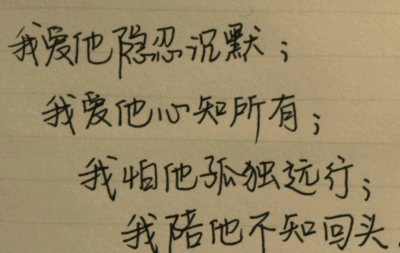 我爱他隐忍沉默；
我爱他心知所有；
我怕他孤独远行；
我陪他不知回头.